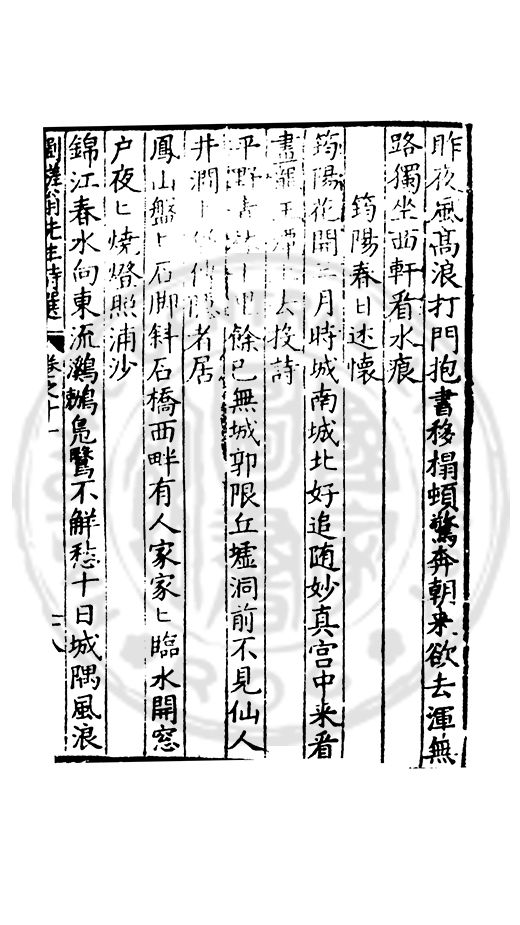 昨夜風髙浪打門抱書移榻頓驚奔朝来欲去渾無
路獨坐西軒看水痕
筠陽春日述懷
筠陽花開二月時城南城北好追随妙真宫中来看
畫龍王潭上去投詩
平野青十里餘已無城郭限丘墟洞前不見仙人
井澗上者居
鳳山盤匕石脚斜石橋西畔有人家家匕臨水開窓
户夜匕燒燈照浦沙
錦江春水向東流鸂鶒凫鷖不解愁十日城隅風浪
劉槎翁先生詩選 卷之十一 十八